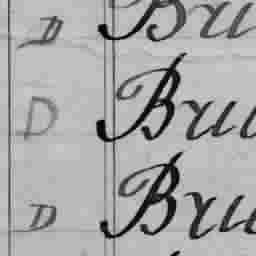 D Bru
D Bru
D Bru